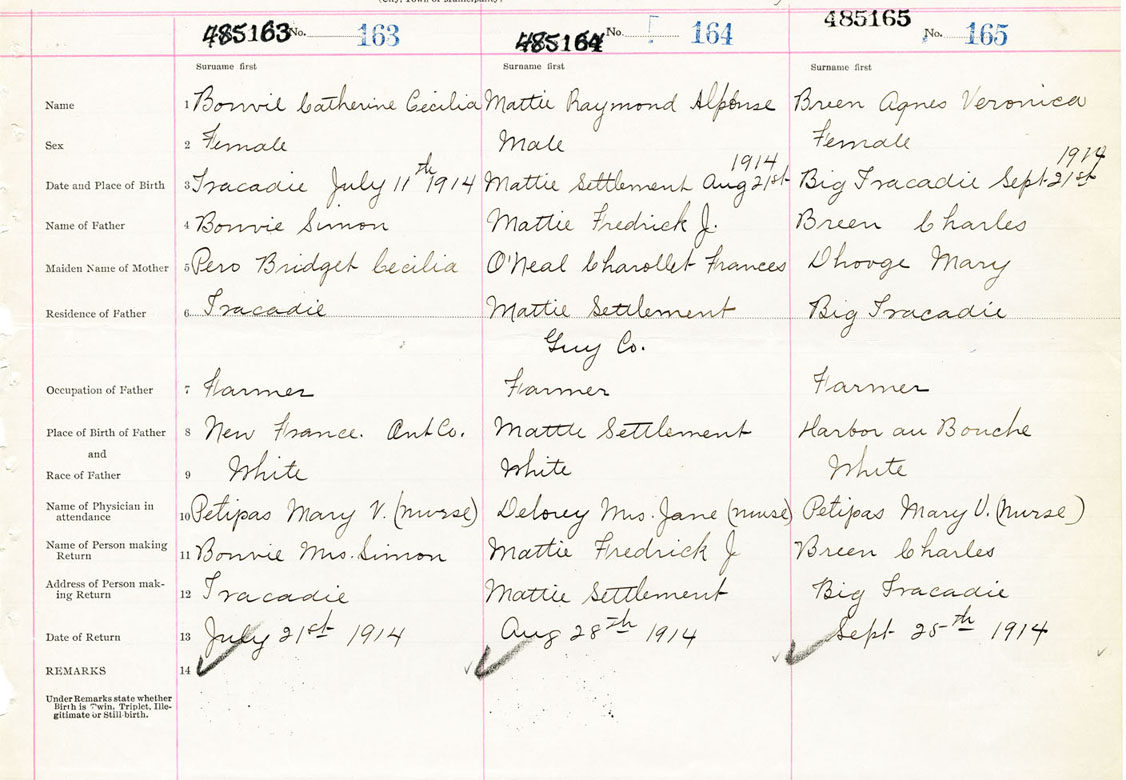 (City, Town or Municipality)
485163 No. 163 485164 No. 164 485165 No. 165
Surname first Surname first Surname first
Name 1 Bonvie Catherine Cecilia Mattie Raymond Alphonse Breen Agnes Veronica
Sex 2 Female Male Female
1914 1914
Date and Place of Birth 3 Tracadie July 11th 1914 Mattie Settlement Aug 21st Big Tracadie Sept 21st
Name of Father 4 Bonvie Simon Mattie Fredrick J. Breen Charles
Maiden Name of Mother 5 Pero Bridget Cecilia O'Neal Charollet Frances Dhooge Mary
Residence of Father 6 Tracadie Mattie Settlement Big Tracadie
Guy Co.
Occupation of Father 7 Farmer Farmer Farmer
Place of Birth of Father 8 New France. Ant Co. Mattie Settlement Harbor au Bouche
and
Race of Father 9 White White White
Name of Physician in
attendance 10 Petipas Mary V. (nurse) Delorey Mrs. Jane (nurse) Petipas Mary V. (nurse)
Name of Person making
Return 11 Bonvie Mrs. Simon Mattie Fredrick J Breen Charles
Address of Person mak-
ing Return 12 Tracadie Mattie Settlement Big Tracadie
Date of Return 13 July 21st 1914 Aug 28th 1914 Sept 25th 1914
REMARKS 14
Under Remarks state whether
Birth is Twin, Triplet, Ille-
gitimate or Still-birth.